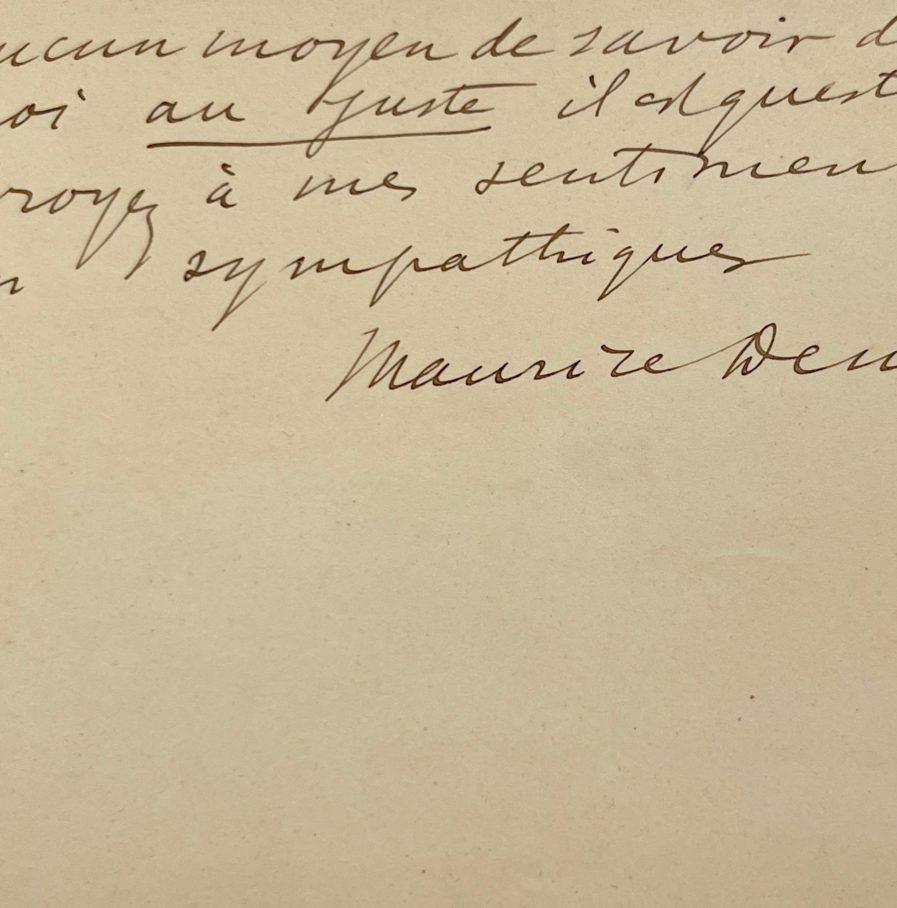 ucun moyen de savoir d
oi au juste il est quest
royez à mes sentimen
n sympathiques
Maurice Den